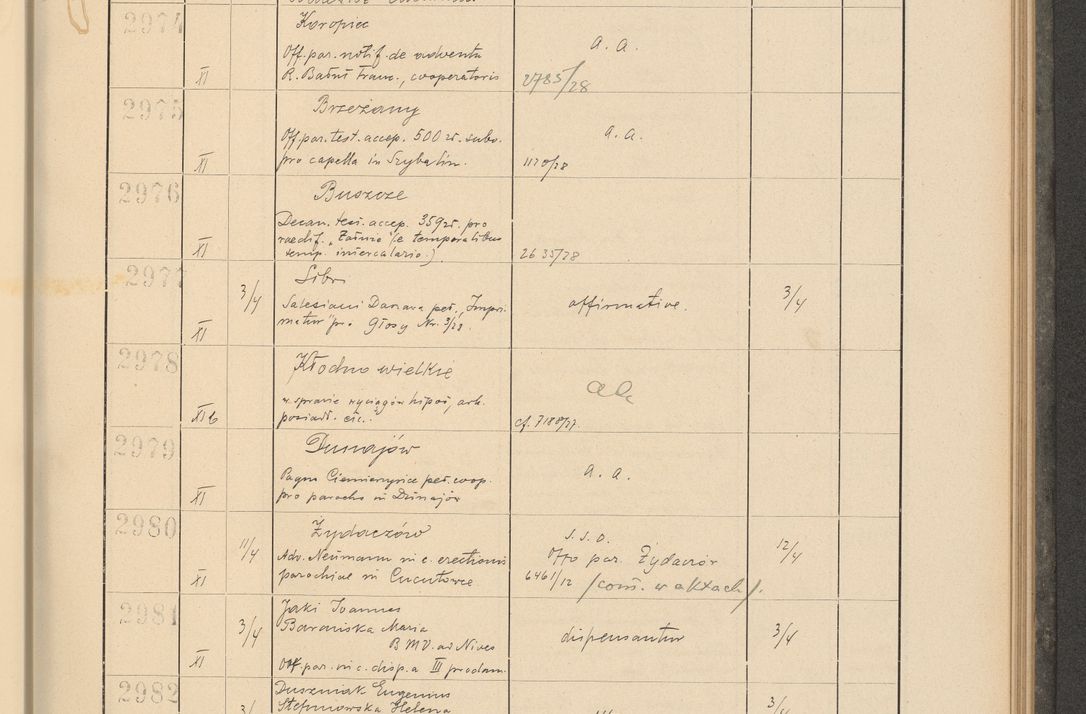 2974
Koropiec
Off. par. notif. de adventu
R. Franc., cooperatoris
a. a.
XI
2785/28
2975
Brzeżany
Off. par. test. accep. 500 zł. subs.
pro capella in Szybalin.
a. a.
XI
1170/28
2976
Buszcze
Decan. test. accep. 359 zł. pro
raedif. (e temporalibus
temp. intercalario.)
XI
2635/28
2977
3/4
Libr.
Salesiani Daszawa pet. „Impri-
matur" pro Głosy Nr. 3/28.
affirmative.
3/4
XI
2978
Kłodno wielkie
w sprawie wyciągów hipot, ark.
posiadł. etc.
XI b
aa
cf. 7180/27.
2979
Dunajów
Pagus Ciemierzyńce pet. coop.
pro parocho in Dunajów
a. a.
XI
2980
11/4
Żydaczów
Adv. Neumann in c. erectionis
parochiae in Cucułowce
s. s. o.
Offo par. Żydaczów
6461/12 /com. w aktach/.
12/4
XI
2981
3/4
Jaki Joannes
Barańska Maria
B M V. ad Nives
Off. par. in c. disp. a III proclam.
dispensantur
3/4
XI
2982
Duszniak Eugenius
Stefanowska Helena
3/
3/4